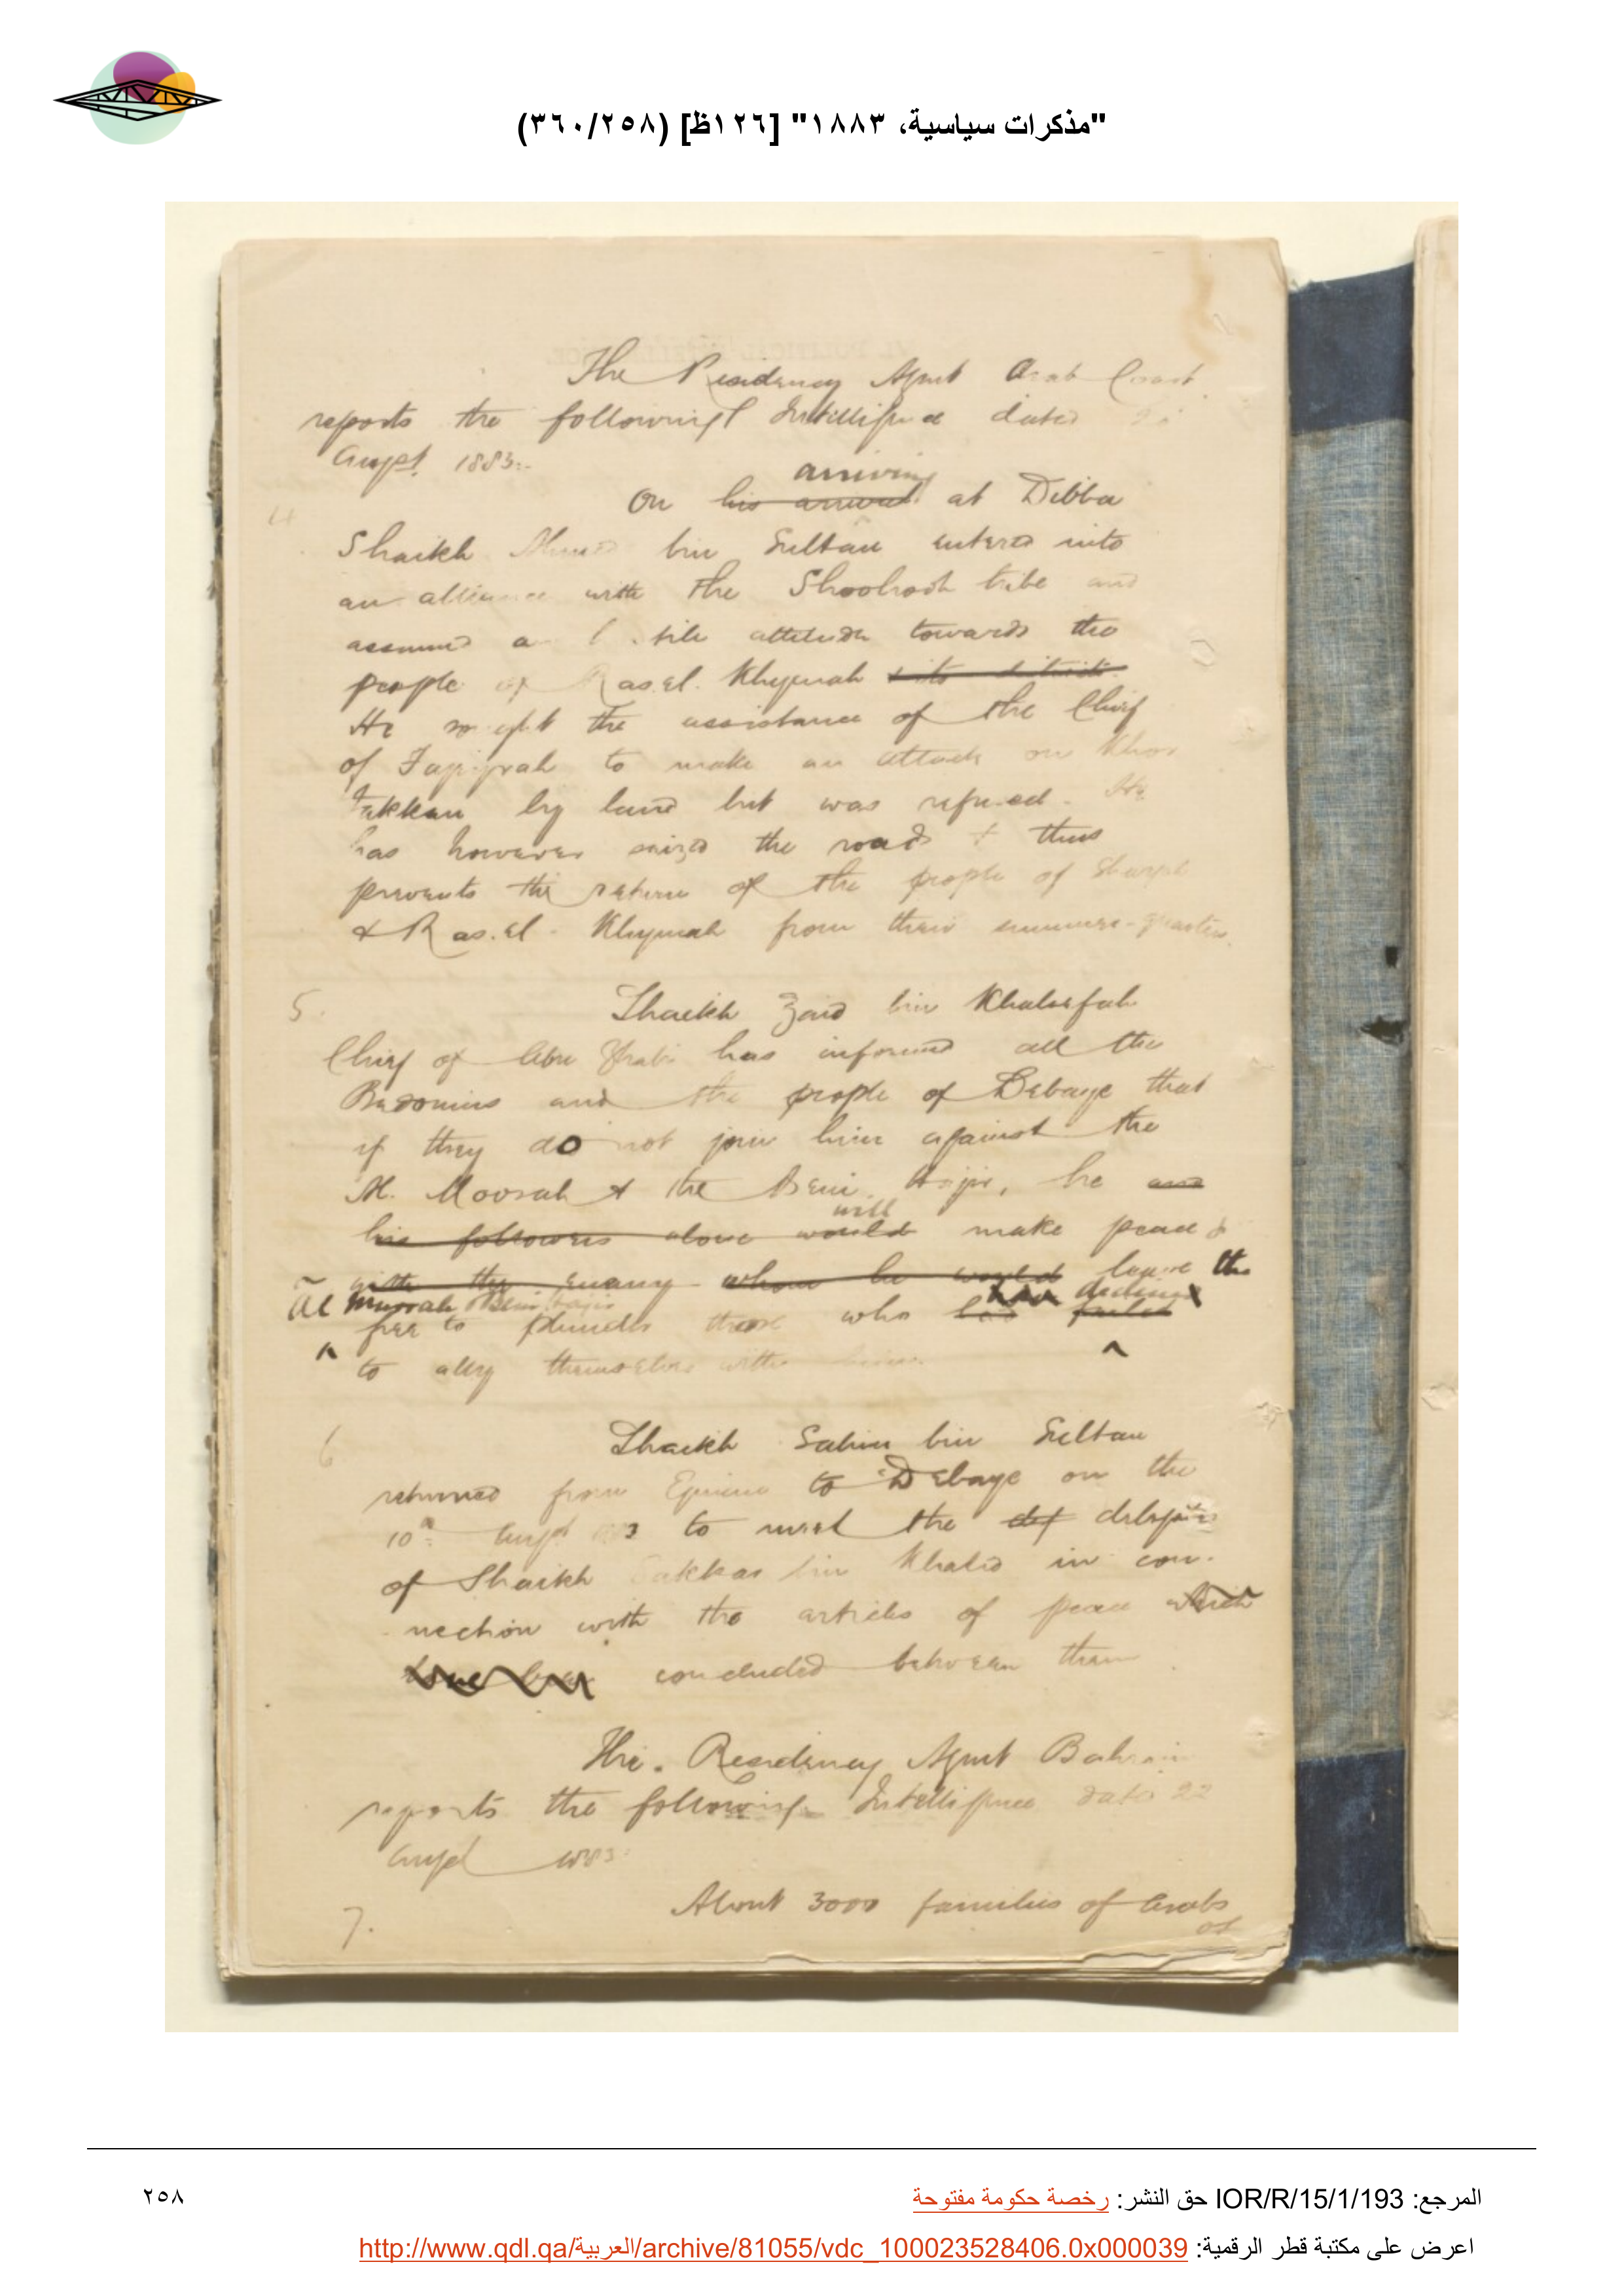 "مذكرات سياسية، ١٨٨٣" [١٢٦ظ] (٣٦٠/٢٥٨)
The Residency Agent Arab Coast
reports the following Intelligence dated
Augst. 1883:-
arriving
4 On his arrival at Dibba
Shaikh Ahmed bin Sultan entered into
an alliance with the tribe and
assumed a hostile attitude towards the
people of Ras.el.Khymah
He sought the assistance of the Chief
of Fajeyrah to make an attack on Khor
Fakkan by land but was refused. He
has however seized the road & thus
prevents the return of the people of Shargah
& Ras.el-Khymah from their summer-quarters.
5. Shaikh Zaid bin Khaleefah
Chief of Abu Thabi has informed all the
Bedouins and the people of Debaye that
if they do not join him against the
Al. Moorah & the Beni Hajir, he and
will
his followers alone would make peace &
with the enemy whom he would leave the
Al Murrah & Beni Hajir declined
free to plunder those who had failed
to ally themselves with him.
6 Shaikh Salim bin Sultan
returned from to Debaye on the
10th Augst 1883 to meet the
of Shaikh Sakkar bin Khalid in con-
nection with the articles of peace which
have been concluded between them
The Residency Agent Bahrain
reports the following Intelligence dated 22
Augst 1883:
7. About 3000 families of Arabs
of
المرجع: IOR/R/15/1/193 حق النشر: رخصة حكومة مفتوحة
٢٥٨
اعرض على مكتبة قطر الرقمية: http://www.qdl.qa/العربية/archive/81055/vdc_100023528406.0x000039